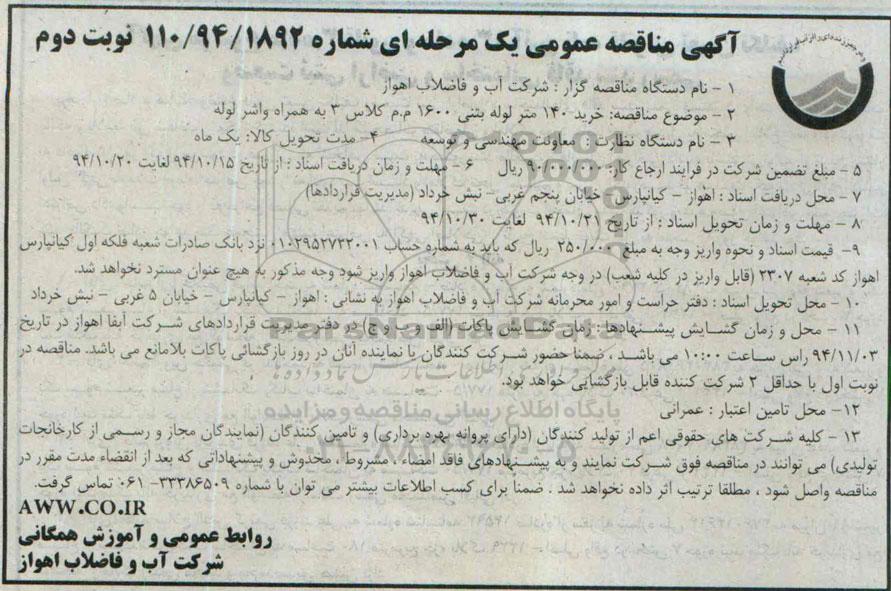 آگهی مناقصه عمومی یک مرحله ای شماره ۱۱۰/۹۴/۱۸۹۲ نوبت دوم
۱ - نام دستگاه مناقصه گزار : شرکت آب و فاضلاب اهواز
۲ - موضوع مناقصه: خرید ۱۴۰ متر لوله بتنی ۱۶۰۰ م.م کلاس ۳ به همراه واشر لوله
۳ - نام دستگاه نظارت : معاونت مهندسی و توسعه ۴- مدت تحویل کالا: یک ماه
۵ - مبلغ تضمین شرکت در فرایند ارجاع کار: ۹۰/۰۰۰/۰۰۰ ریال ۶ - مهلت و زمان دریافت اسناد : از تاریخ ۹۴/۱۰/۱۵ لغایت ۹۴/۱۰/۲۰
۷ - محل دریافت اسناد : اهواز - کیانپارس - خیابان پنجم غربی- نبش خرداد (مدیریت قراردادها)
۸ - مهلت و زمان تحویل اسناد : از تاریخ ۹۴/۱۰/۲۱ لغایت ۹۴/۱۰/۳۰
۹- قیمت اسناد و نحوه واریز وجه به مبلغ ۲۵۰/۰۰۰ ریال که باید به شماره حساب ۰۱۰۲۹۵۲۷۳۲۰۰۱ نزد بانک صادرات شعبه فلکه اول کیانپارس
اهواز کد شعبه ۲۳۰۷ (قابل واریز در کلیه شعب) در وجه شرکت آب و فاضلاب اهواز واریز شود وجه مذکور به هیچ عنوان مسترد نخواهد شد.
۱۰ - محل تحویل اسناد : دفتر حراست و امور محرمانه شرکت آب و فاضلاب اهواز به نشانی : اهواز - کیانپارس - خیابان ۵ غربی - نبش خرداد
۱۱ - محل و زمان گشایش پیشنهادها : زمان گشایش پاکات (الف و ب و ج) در دفتر مدیریت قراردادهای شرکت آبفا اهواز در تاریخ
۹۴/۱۱/۰۳ راس ساعت ۱۰:۰۰ می باشد ، ضمنا حضور شرکت کنندگان یا نماینده آنان در روز بازگشائی پاکات بلامانع می باشد. مناقصه در
نوبت اول با حداقل ۲ شرکت کننده قابل بازگشایی خواهد بود.
۱۲- محل تامین اعتبار : عمرانی
۱۳ - کلیه شرکت های حقوقی اعم از تولید کنندگان (دارای پروانه بهره برداری) و تامین کنندگان (نمایندگان مجاز و رسمی از کارخانجات
تولیدی) می توانند در مناقصه فوق شرکت نمایند و به پیشنهادهای فاقد امضاء ، مشروط ، مخدوش و پیشنهاداتی که بعد از انقضاء مدت مقرر در
مناقصه واصل شود ، مطلقا ترتیب اثر داده نخواهد شد . ضمناً برای کسب اطلاعات بیشتر می توان با شماره ۳۳۳۸۶۵۰۹- ۰۶۱ تماس گرفت.
AWW.CO.IR
روابط عمومی و آموزش همگانی
شرکت آب و فاضلاب اهواز
ParsNamadData
پایگاه اطلاع رسانی مناقصه و مزایده